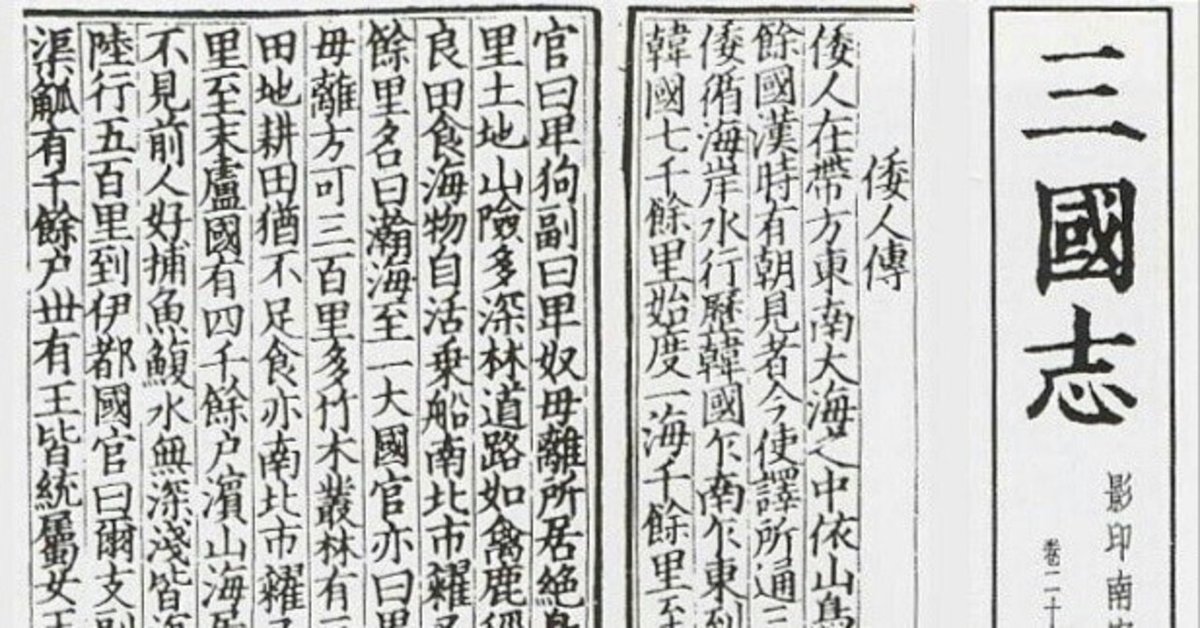 三國志
影印南宋
卷二十
倭人傳
倭人在帶方東南大海之中依山島
餘國漢時有朝見者今使譯所通三
倭循海岸水行歷韓國乍南乍東到
韓國七千餘里始度一海千餘里至
官曰卑狗副曰卑奴毋離所居絕島
里土地山險多深林道路如禽鹿徑
良田食海物自活乗船南北市糴又
餘里名曰瀚海至一大國官亦曰卑
毋離方可三百里多竹木叢林有三
田地耕田猶不足食亦南北市糴又
里至末盧國有四千餘户濵山海居
不見前人好捕魚鰒水無深淺皆沈
陸行五百里到伊都國官曰爾支副
渠觚有千餘户丗有王皆統屬女王